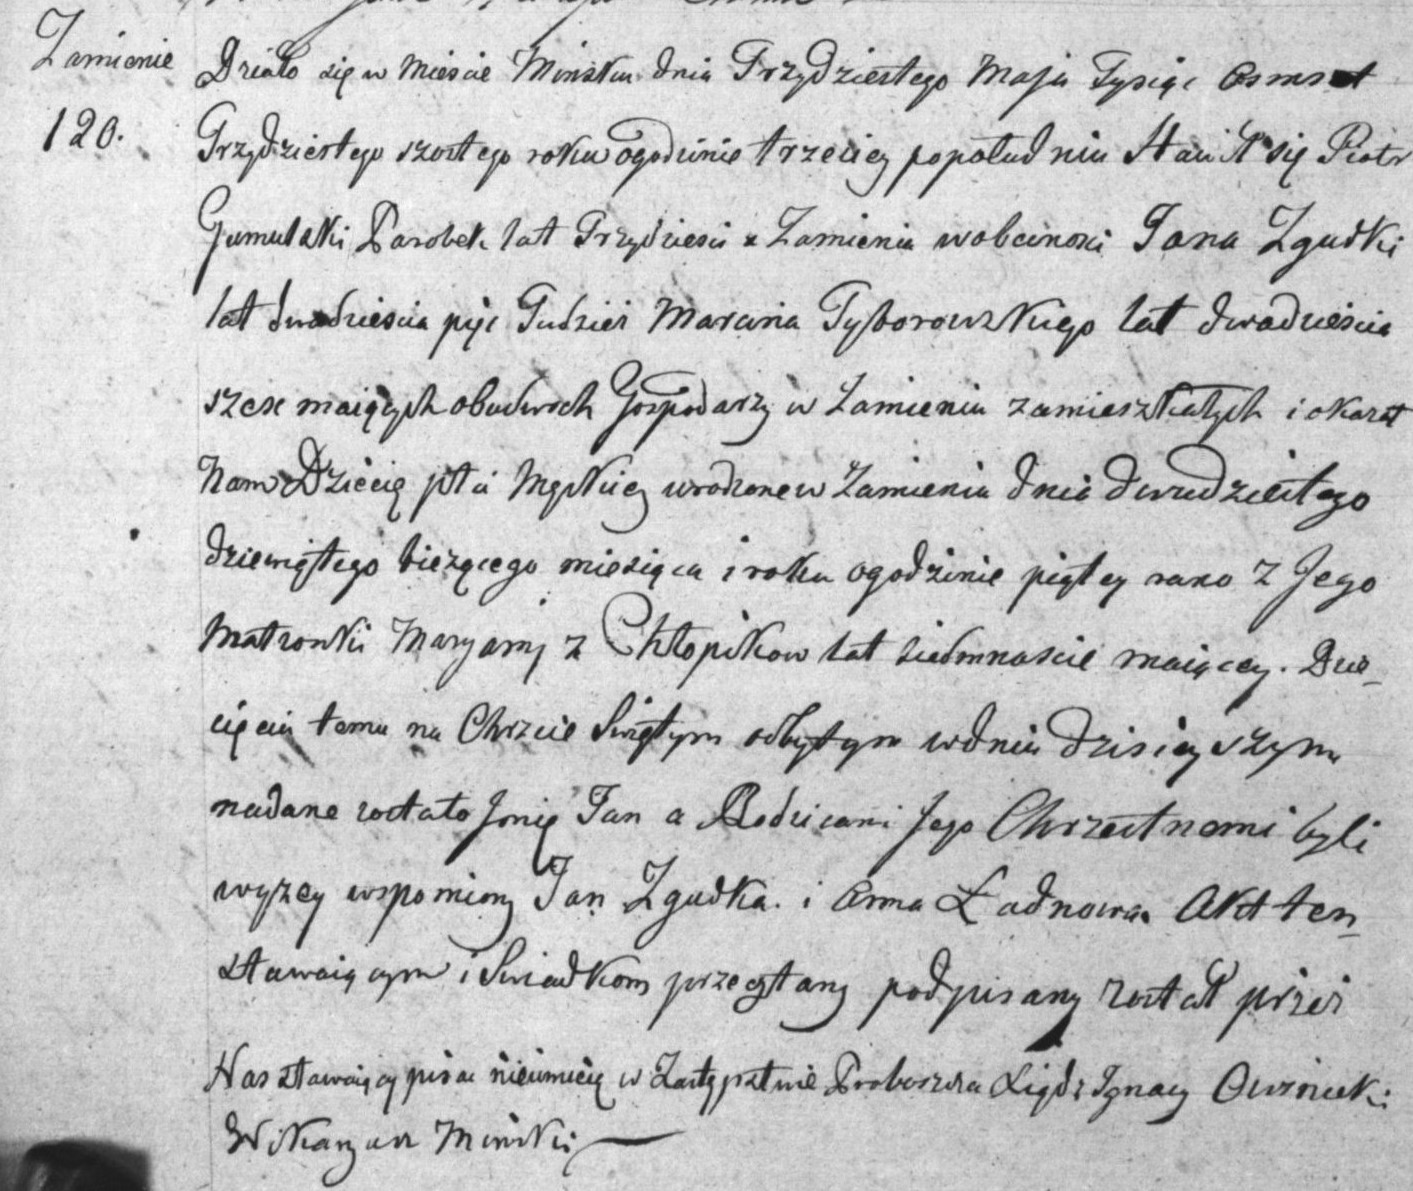 Zamienie
120.
Działo się w Mieście Mińsku dnia Trzydziestego Maja Tysiąc osmset
Trzydziestego szostego roku ogodzinie trzeciey popołudniu Stawił się Piotr
Gumulski Parobek lat Trzydzieści z Zamienia wobecnosci Jana Zgudki
lat dwadzieścia pięc Tudzież Marcina Tyborowskiego lat dwadzieścia
szesc maiących obudwoch Gospodarzy w Zamieniu zamieszkałych i okazał
Nam Dziecię płci Męskiey urodzone w Zamieniu dnia dwudziestego
dziewiątego bieżącego miesiąca i roku ogodzinie piątey rano z Jego
Matronki Maryanny z Chłopikow lat siedmnascie maiącey. Dzie_
cięciu temu na Chrzcie Swiętym odbytym wdniu dzisieyszym
nadane zostało Jmię Jan a Rodzicami Jego Chrzestnemi byli
wyzey wspomiony Jan Zgudka i Anna Ładnowa Akt ten_
stawaiącym i Swiadkom przeczytany podpisany został przez
Nas stawaiący pisac nieumieią w Zastępstwie Proboszcza Xiądz Ignacy
Wikaryusz Minski